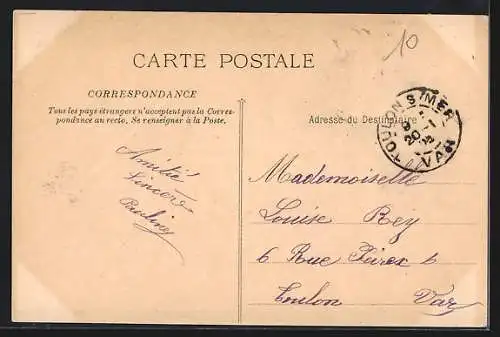 10
CARTE POSTALE
CORRESPONDANCE
Tous les pays étrangers n'acceptent pas la Corres-
pondance au recto. Se renseigner à la Poste.
Adresse du Destinataire
TOULON S/MER
VAR
Amitié
Sincère
Mademoiselle
Louise Rey
6 Rue
Toulon Var